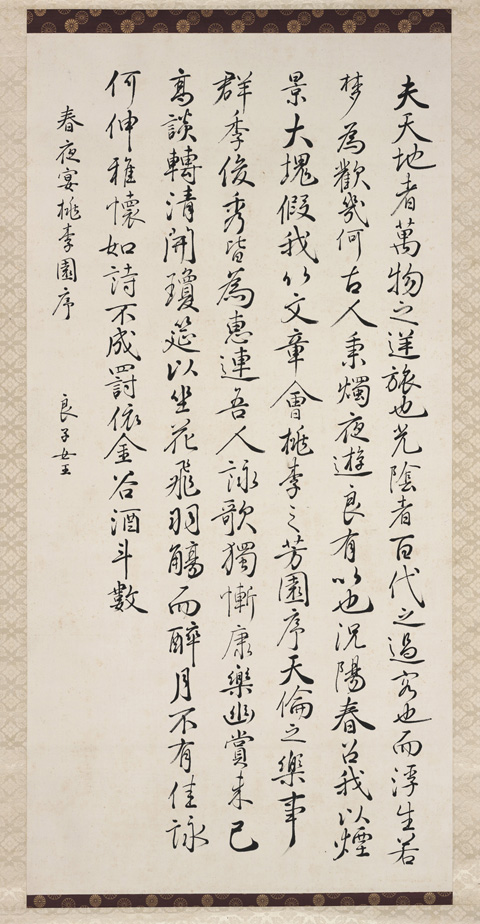 夫天地者萬物之逆旅也光陰者百代之過客也而浮生若
梦為歡幾何古人秉燭夜遊良有以也況陽春召我以煙
景大塊假我以文章會桃李之芳園序天倫之樂事
群季俊秀皆為惠連吾人詠歌獨慚康樂幽賞未已
高談轉清開瓊筵以坐花飛羽觴而醉月不有佳詠
何伸雅懷如詩不成罰依金谷酒斗數
春夜宴桃李園序　良子女王